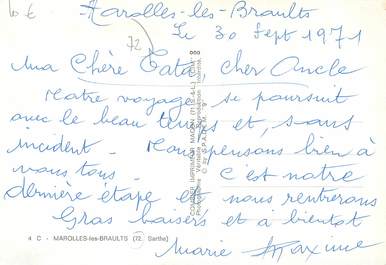 Marolles-les-Braults
Le 30 Sept 1971
72
Ma Chère Tata, cher Oncle
Notre voyage se poursuit
avec le beau temps et, sans
incident. Nous pensons bien à
vous tous. C'est notre
dernière étape et nous rentrerons
Gros baisers et à bientôt
Marie Maxime
4 C - MAROLLES-les-BRAULTS (72. Sarthe)